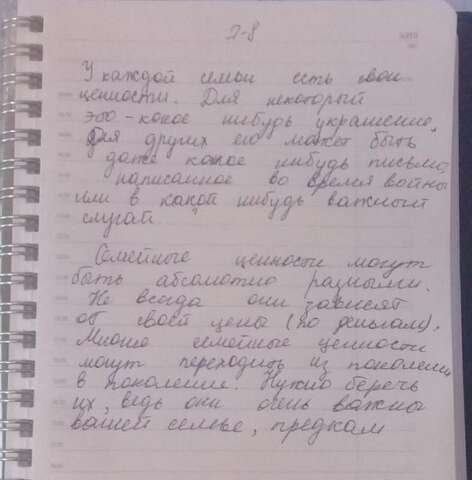 2-8
У каждой семьи есть свои
ценности. Для некоторый
это - какое нибудь украшение,
Для других его может быть
даже какое нибудь письмо,
написанное во время войны
или в какой нибудь важный
случай
Семейные ценности могут
быть абсолютно разными.
Не всегда они зависят
от своей цены (по деньгам).
Много семейные ценности
могут переходить из поколения
в поколение. Нужно беречь
их, ведь они очень важны
вашей семье, предкам